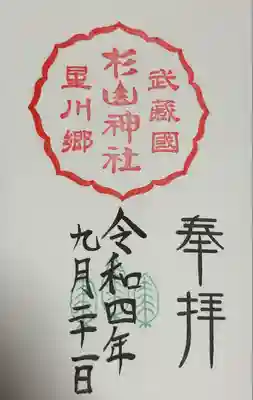 武蔵國
杉山神社
星川郷
奉拝
令和四年
九月二十一日